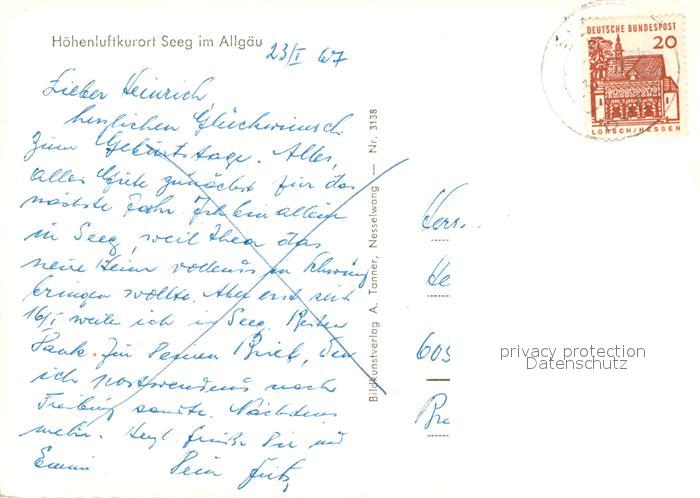 Höhenluftkurort Seeg im Allgäu
23/I 67
Lieber Heinrich,
herzlichen Glückwunsch
zum Geburtstage. Alles,
alles Gute zunächst für das
nächste Jahr. Ich bin allein
in Seeg, weil Thea das
neue Heim vollends in Schwung
bringen wollte. Aber erst seit
16/I weile ich in Seeg. Besten
Dank für Deinen Brief, den
ich postwendend nach
Freiburg sandte. Nächstens
mehr. Herzl. Grüße Dir und
Emmi Dein Fritz
Bildkunstverlag A. Tanner, Nesselwang — Nr. 3138
DEUTSCHE BUNDESPOST
20
LORSCH/HESSEN
Herr
He
605
privacy protection
Datenschutz
Br